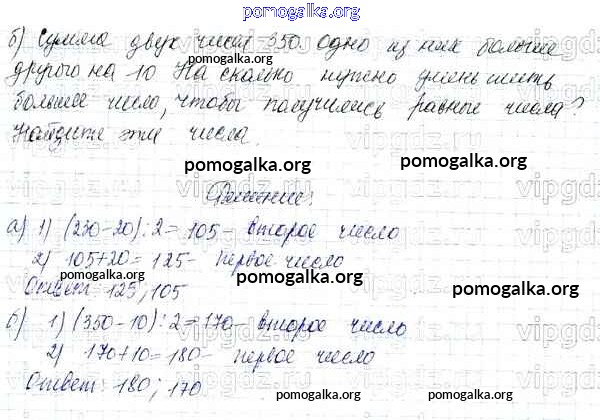 pomogalka.org
б) Сумма двух чисел 350. Одно из них больше
другого на 10 На сколько нужно уменьшить
pomogalka.org
pomogalka.org
большее число, чтобы получились равные числа?
Найдите эти числа.
pomogalka.org
pomogalka.org
Решение:
pomogalka.org
а) 1) (230-20):2=105- второе число
2) 105+20=125- первое число
pomogalka.org
pomogalka.org
pomogalka.org
Ответ: 125, 105
б) 1) (350-10):2=170- второе число
2) 170+10=180- первое число
pomogalka.org
pomogalka.org
Ответ: 180; 170